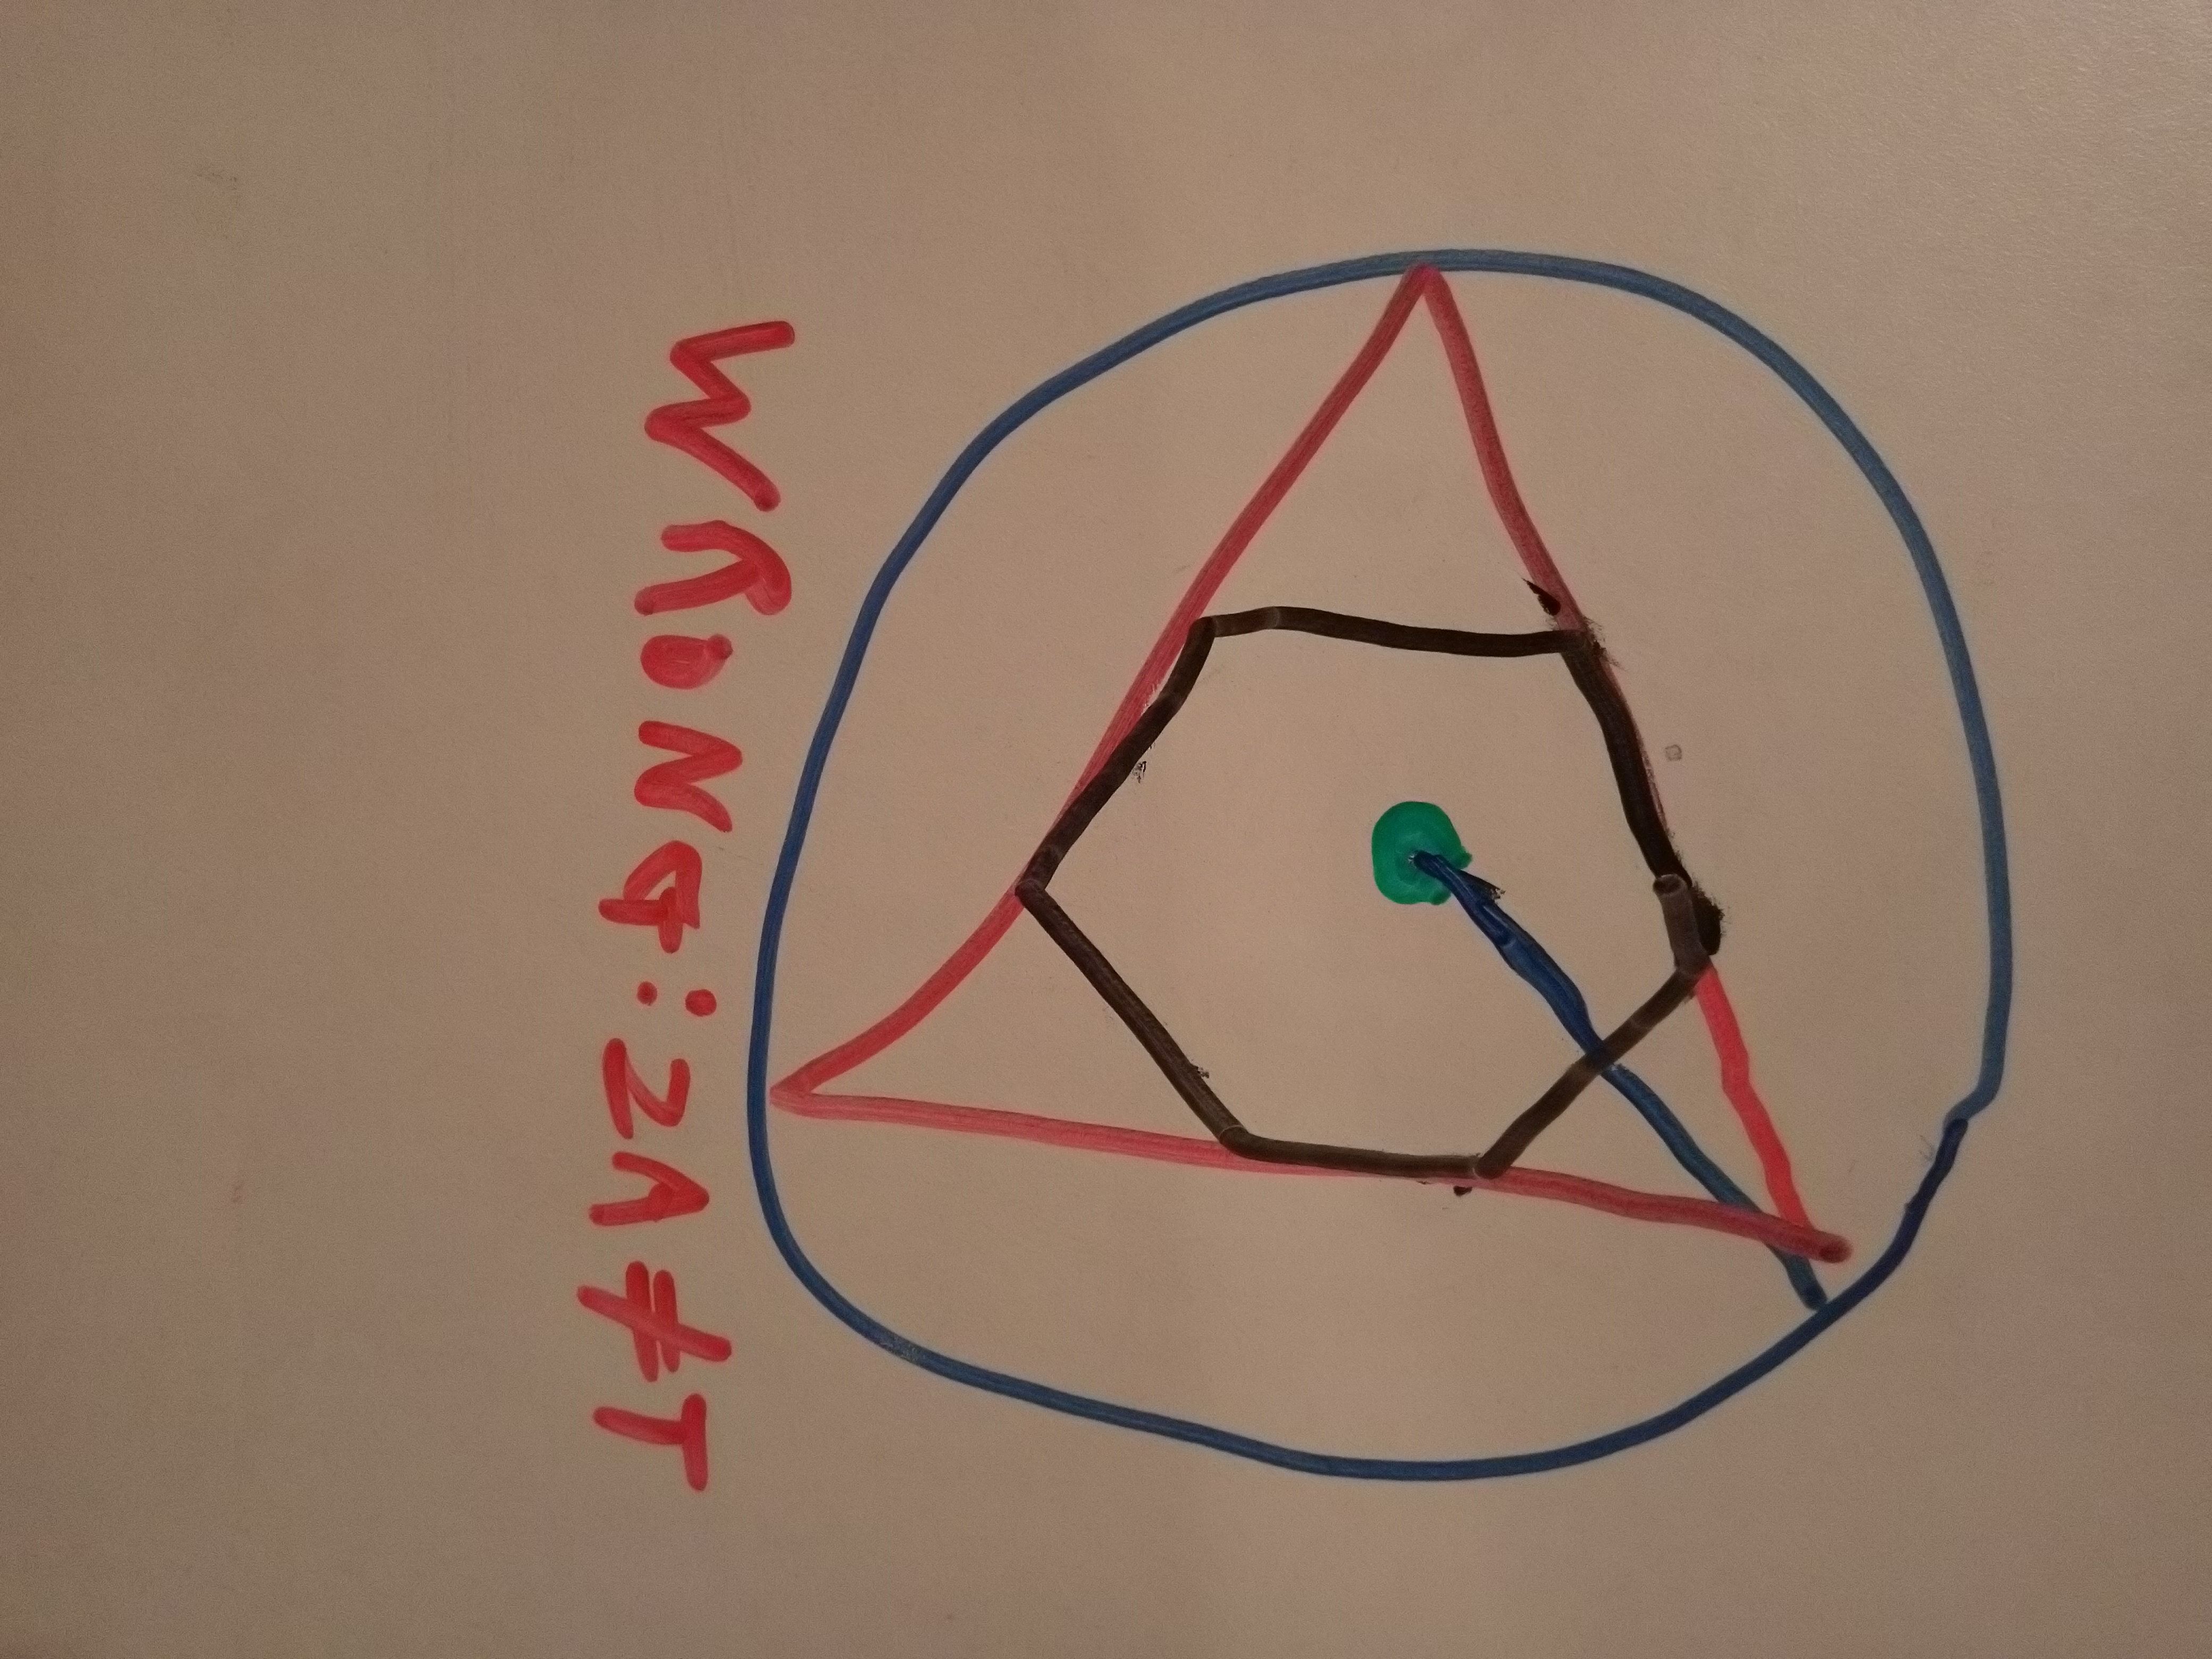 WRONG: 2A≠T